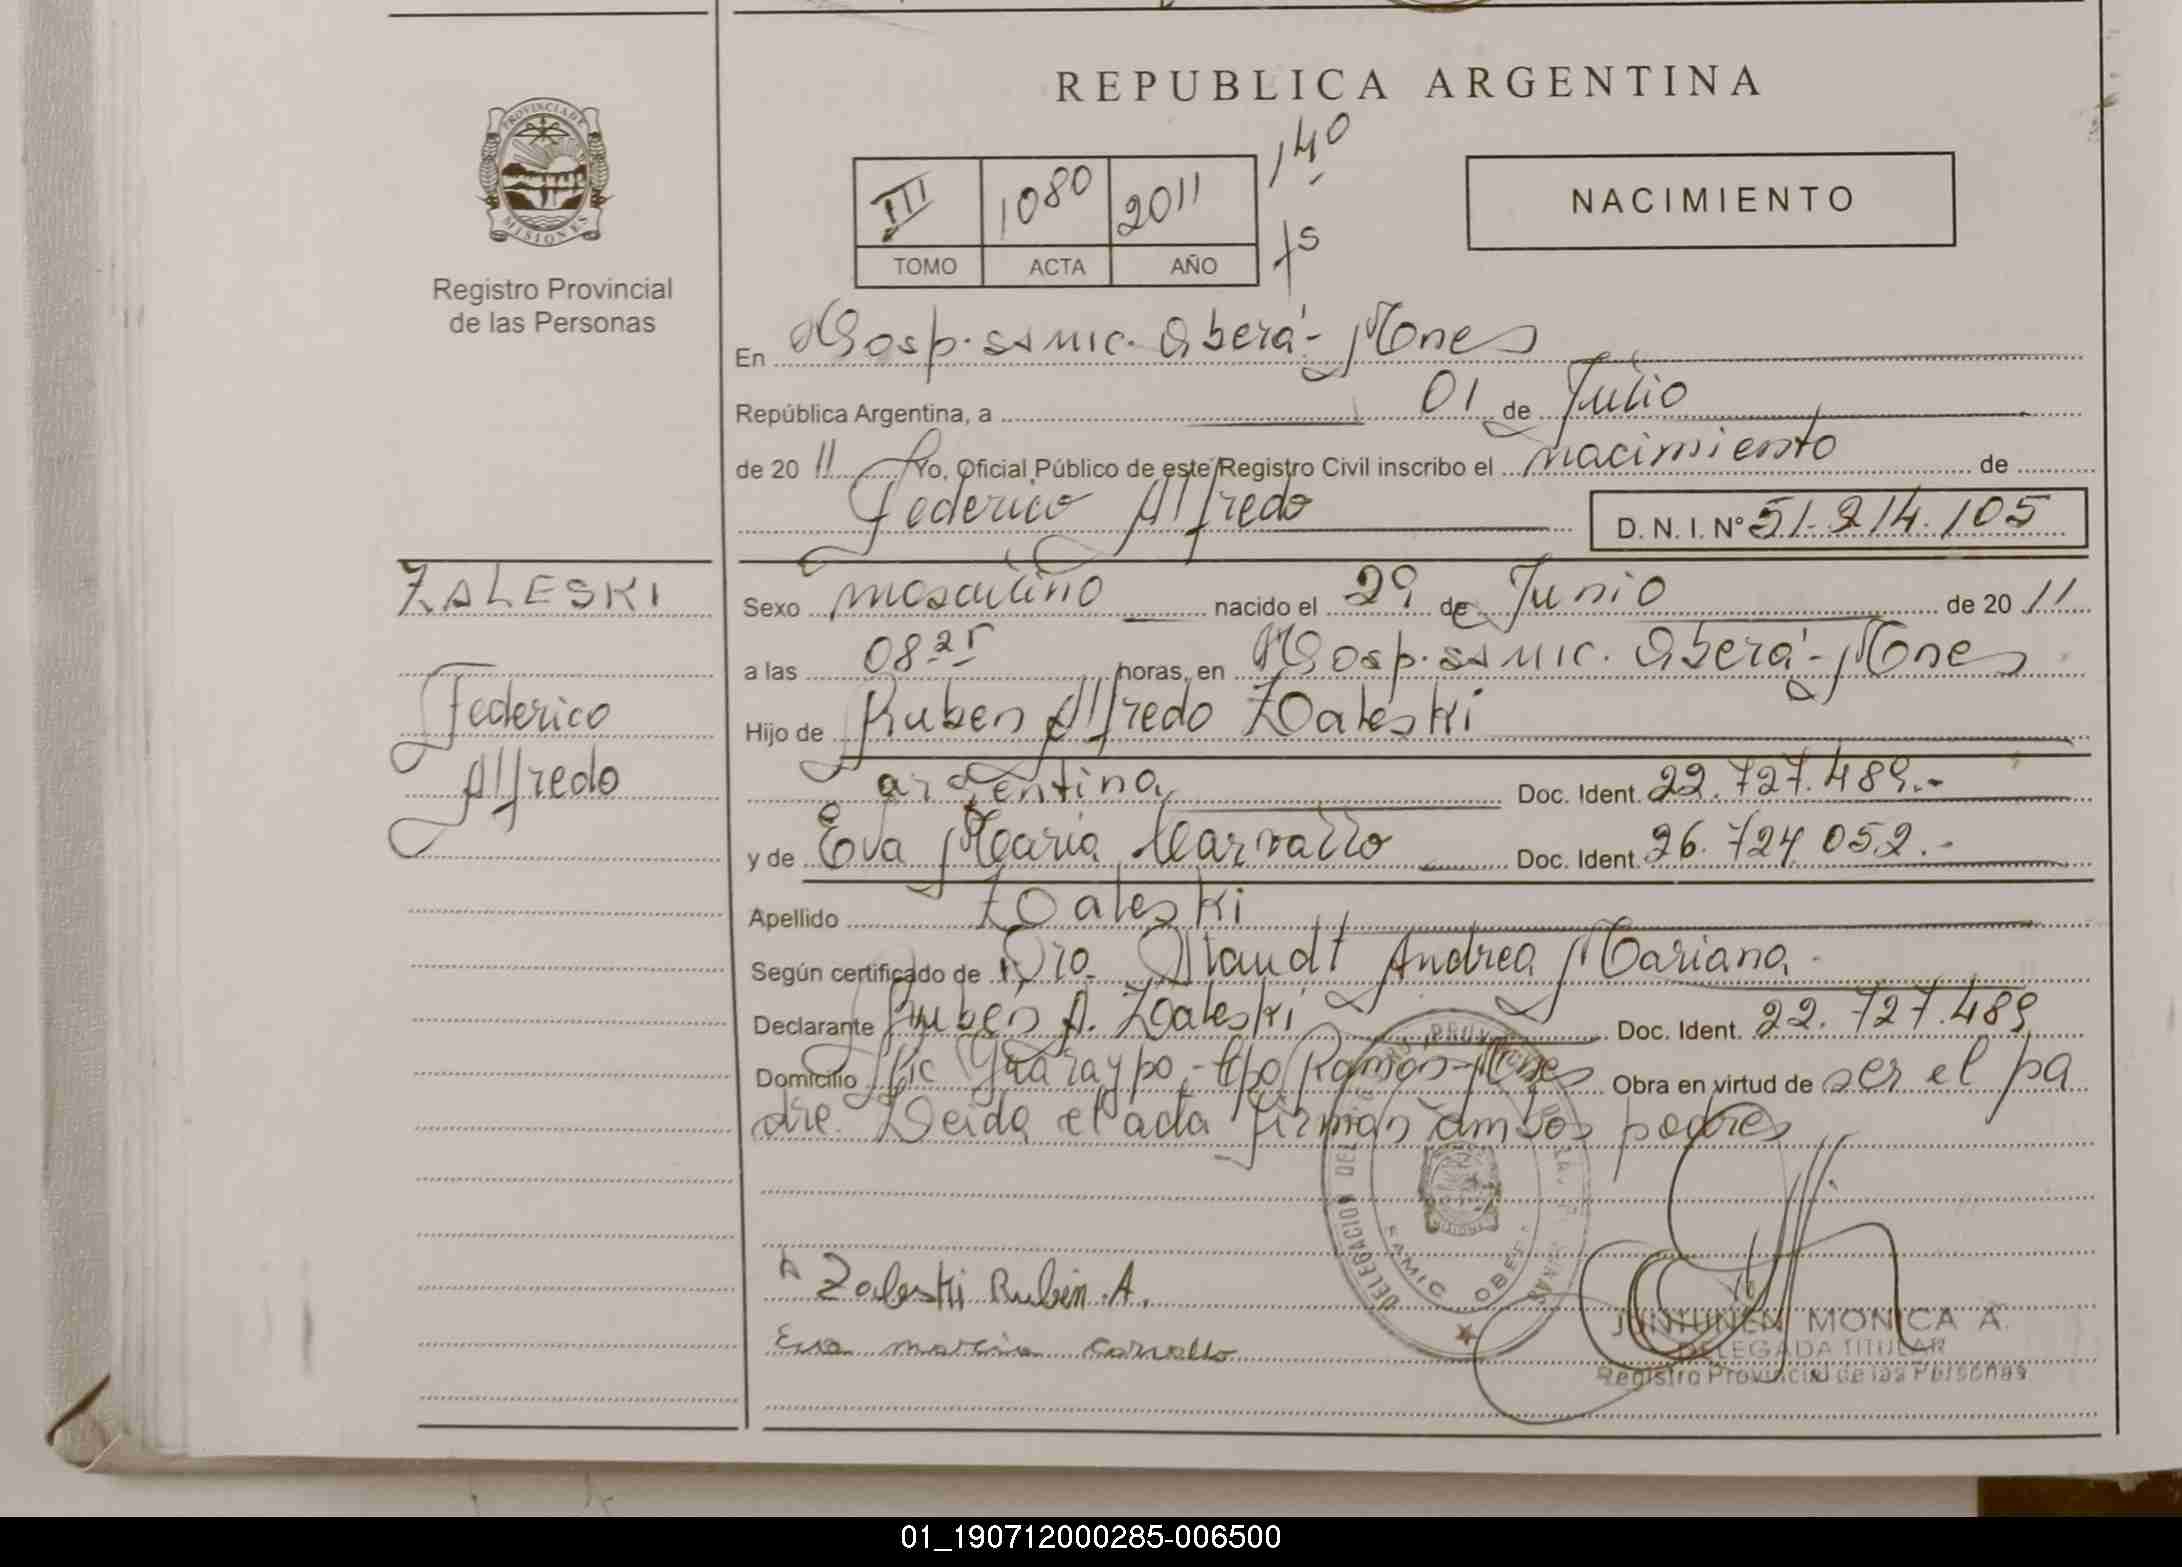 REPUBLICA ARGENTINA
PROVINCIA DE
MISIONES
Registro Provincial
de las Personas
III 1080 2011 140
TOMO ACTA AÑO fs
NACIMIENTO
En Hosp. SAMIC. Oberá - Mnes
República Argentina, a 01 de Julio
de 20 11 Yo, Oficial Público de este Registro Civil inscribo el nacimiento de
Federico Alfredo D. N. I. Nº 51.214.105
ZALESKI
Federico
Alfredo
Sexo masculino nacido el 29 de Junio de 20 11
a las 08 25 horas, en Hosp. SAMIC. Oberá - Mnes
Hijo de Ruben Alfredo Zaleski
argentina Doc. Ident. 22.727.489.-
y de Eva Maria Carvallo Doc. Ident. 26.724.052.-
Apellido Zaleski
Según certificado de Dra. Staudt Andrea Mariana
Declarante Ruben A. Zaleski Doc. Ident. 22.727.489
Domicilio Pic Guaraypo - Cpo Ramon - Mnes Obra en virtud de ser el pa
dre. Leida el acta firman ambos padres
DELEGACION
SAMIC OBERA
Zaleski Rubén A.
Eva maria Carvallo
MONICA A.
DELEGADA TITULAR
Registro Provincial de las Personas
01_190712000285-006500